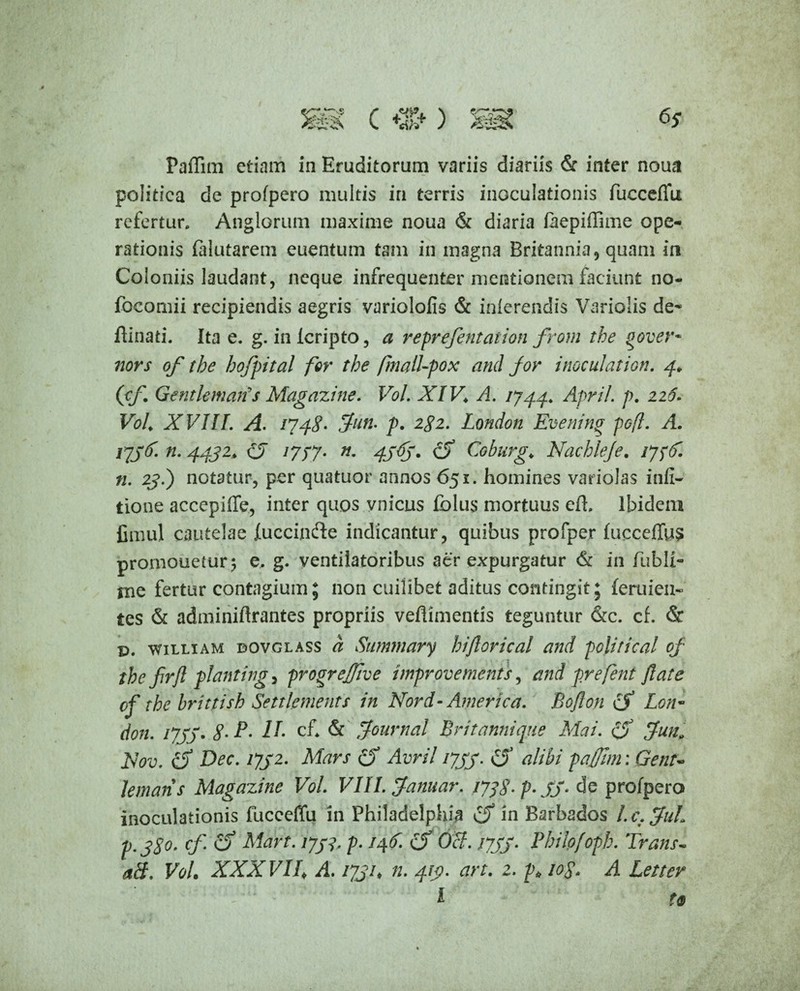 ( ) 65
Paſſim etiam in Eruditorum variis diariis & inter noua
politica de proſpero multis in terris inoculationis ſucceſſu
refertur. Anglorum maxime noua & diaria ſaepiſſime ope-
rationis ſalutarem euentum tam in magna Britannia, quam in
Coloniis laudant, neque infrequenter mentionem faciunt no-
ſocomii recipiendis aegris varioloſis & inſerendis Variolis de-
ſtinati. Ita e. g. in ſcripto, a repreſentation from the gover-
nors of the hoſpital for the ſmall-pox and for inoculation. 4.
(cf. Gentleman's Magazine. Vol. XIV. A. 1744. April. p. 226.
Vol. XVIII. A. 1748. Jun. p. 282. London Evening poſt. A.
1756. n. 4432. & 1757. n. 4565. & Coburg. Nachleſe. 1756.
n. 23.) notatur, per quatuor annos 651. homines variolas inſi-
tione accepiſſe, inter quos vnicus ſolus mortuus eſt. Ibidem
ſimul cautelae ſuccincte indicantur, quibus proſper ſucceſſus
promouetur; e. g. ventilatoribus aër expurgatur & in ſubli-
me fertur contagium; non cuilibet aditus contingit; ſeruien-
tes & adminiſtrantes propriis veſtimentis teguntur &c. cf. &
D. WILLIAM DOVGLASS a Summary hiſtorical and political of
the firſt planting, progreſſive improvements, and preſent ſtate
of the brittish Settlements in Nord-America. Boſton & Lon-
don. 1755. 8. P. II. cf. & Journal Britannique Mai. & Jun.
Nov. & Dec. 1752. Mars & Avril 1755. & alibi paſſim: Gent-
leman's Magazine Vol. VIII. Januar. 1738. p. 55. de proſpero
inoculationis ſucceſſu in Philadelphia & in Barbados l. c. Jul.
p. 380. cf. & Mart. 1753. p. 146. & Oct. 1755. Philoſoph. Trans-
act. Vol. XXXVII. A. 1731. n. 419. art. 2. p. 108. A Letter
I to